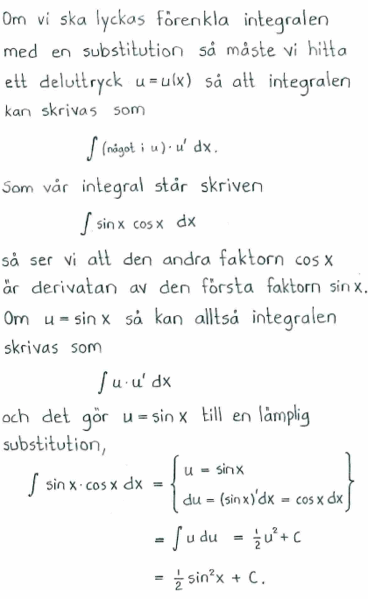 Om vi ska lyckas förenkla integralen
med en substitution så måste vi hitta
ett deluttryck u = u(x) så att integralen
kan skrivas som
∫ (något i u) · u' dx.
Som vår integral står skriven
∫ sin x cos x dx
så ser vi att den andra faktorn cos x
är derivatan av den första faktorn sin x.
Om u = sin x så kan alltså integralen
skrivas som
∫ u · u' dx
och det gör u = sin x till en lämplig
substitution,
∫ sin x · cos x dx = { u = sin x
du = (sin x)' dx = cos x dx }
= ∫ u du = ½ u² + C
= ½ sin² x + C.